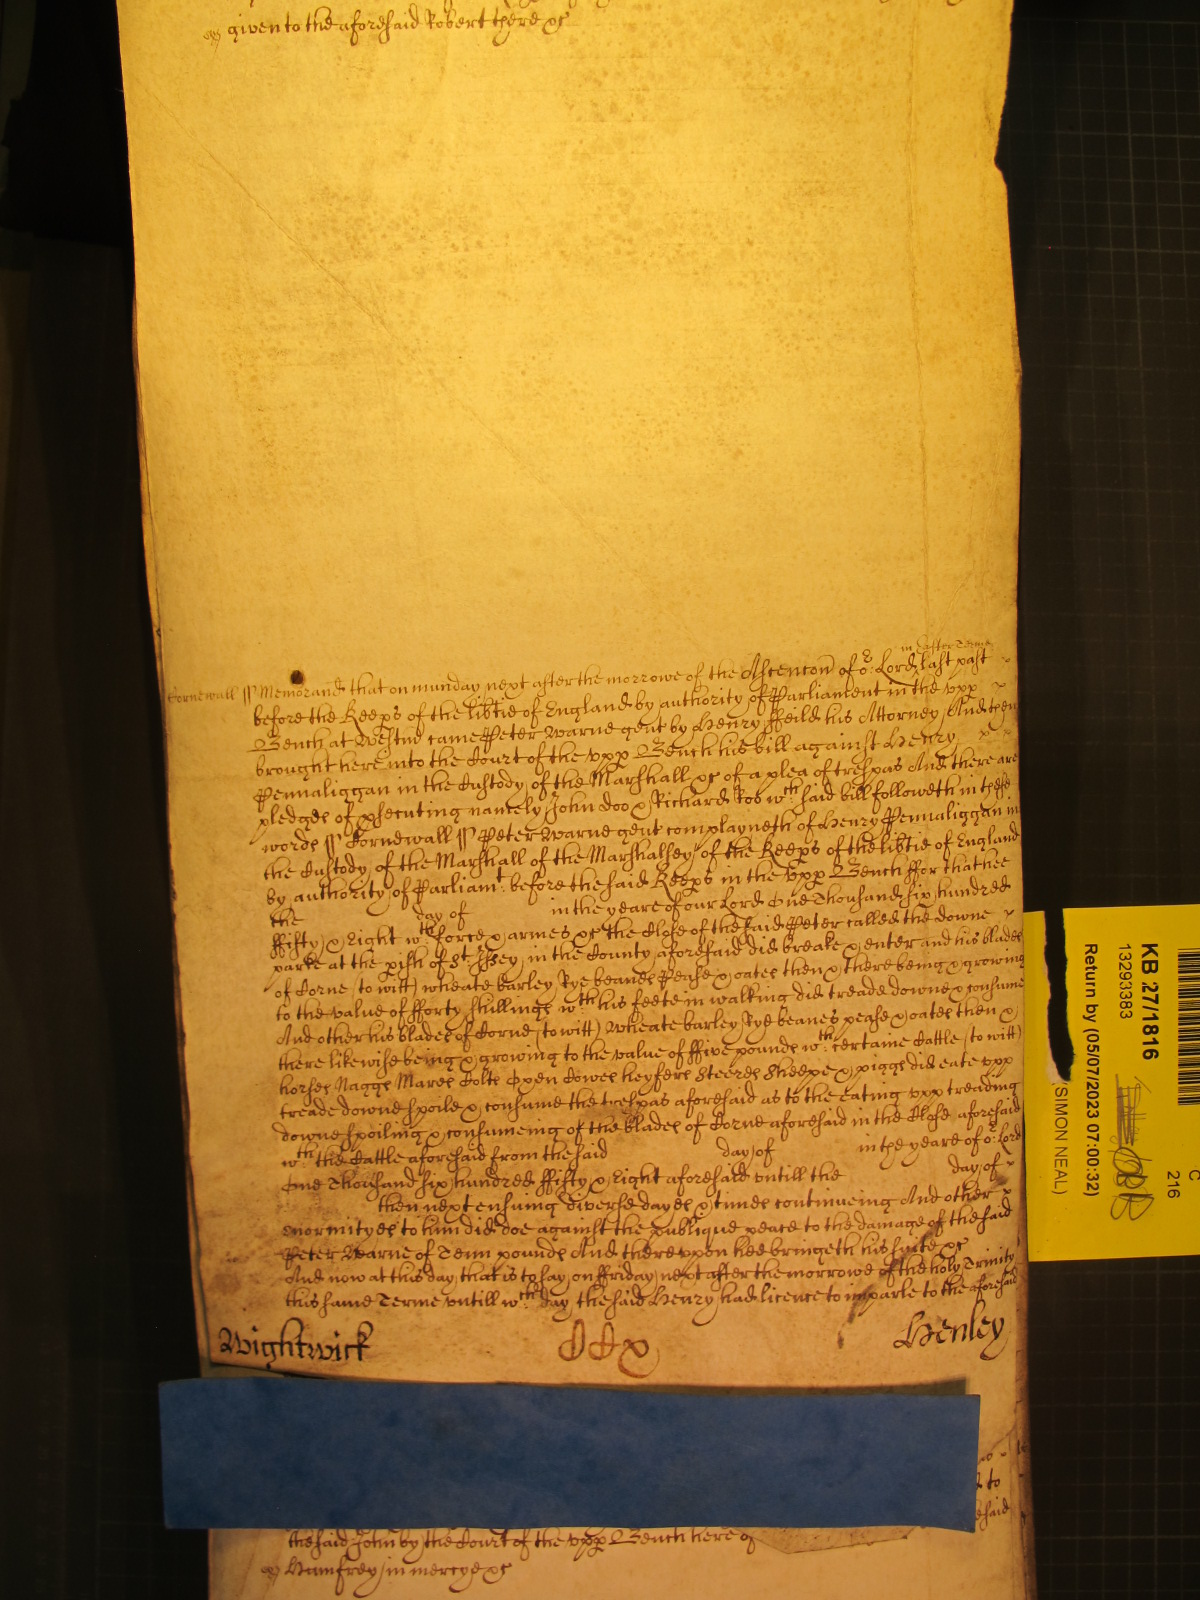 given to the aforesaid Robert there &c
in Easter Terme
Cornewall ss Memorand that on munday next after the morrowe of the Ascencon of or Lord last past
before the Keeps of the libtie of England by authority of Parliament in the upp
Bench at Westmr came Peter Warne gent by Henry ffeild his Attorney And then
brought here into the Court of the upp Bench his bill against Henry
Pennaliggan in the Custody of the Marshall &c of a plea of trespas And there are
pledges of psecuting namely John doo & Richard Roo wch said bill followeth in these
words ss Cornewall ss Peter Warne gent complayneth of Henry Pennaliggan in
the Custody of the Marshall of the Marshalsey of the Keeps of the libtie of England
by authority of Parliamt before the said Keeps in the upp Bench ffor that hee
the day of in the yeare of our Lord One Thousand six hundred
ffifty & Eight wth force & armes &c the Close of the said Peter called the downe
parke at the pish of St Issey in the County aforesaid did breake & enter and his blades
of Corne (to witt) wheate barley Rye beanes Pease & oates then & there being & growing
to the value of fforty shillings wth his feete in walking did treade downe & consume
And other his blades of Corne (to witt) Wheate barley Rye beanes pease & oates then &
there likewise being & growing to the value of ffive pounds wth certaine Cattle (to witt)
horses Naggs Mares Colts Oxen Cowes heyfers Steeres Sheepe & piggs did eate upp
treade downe spoile & consume the trespas aforesaid as to the eating upp treading
downe spoiling & consumeing of the blades of Corne aforesaid in the Close aforesaid
wth the Cattle aforesaid from the said day of in the yeare of or Lord
One Thousand six hundred ffifty & Eight aforesaid untill the day of
then next ensuing diverse dayes & tymes continueing And other
enormityes to him did doe against the publique peace to the damage of the said
Peter Warne of Tenn pounds And thereupon hee bringeth his suite &c
And now at this day that is to say on ffriday next after the morrowe of the holy Trinity
this same Terme untill wch day the said Henry had licence to imparle to the aforesaid
Wightwick Henley
to
said
the said John by the Court of the upp Bench here
Humfrey in mercye &c
KB 27/1816
13293383
Return by (05/07/2023 07:00:32)
(SIMON NEAL)
C
216